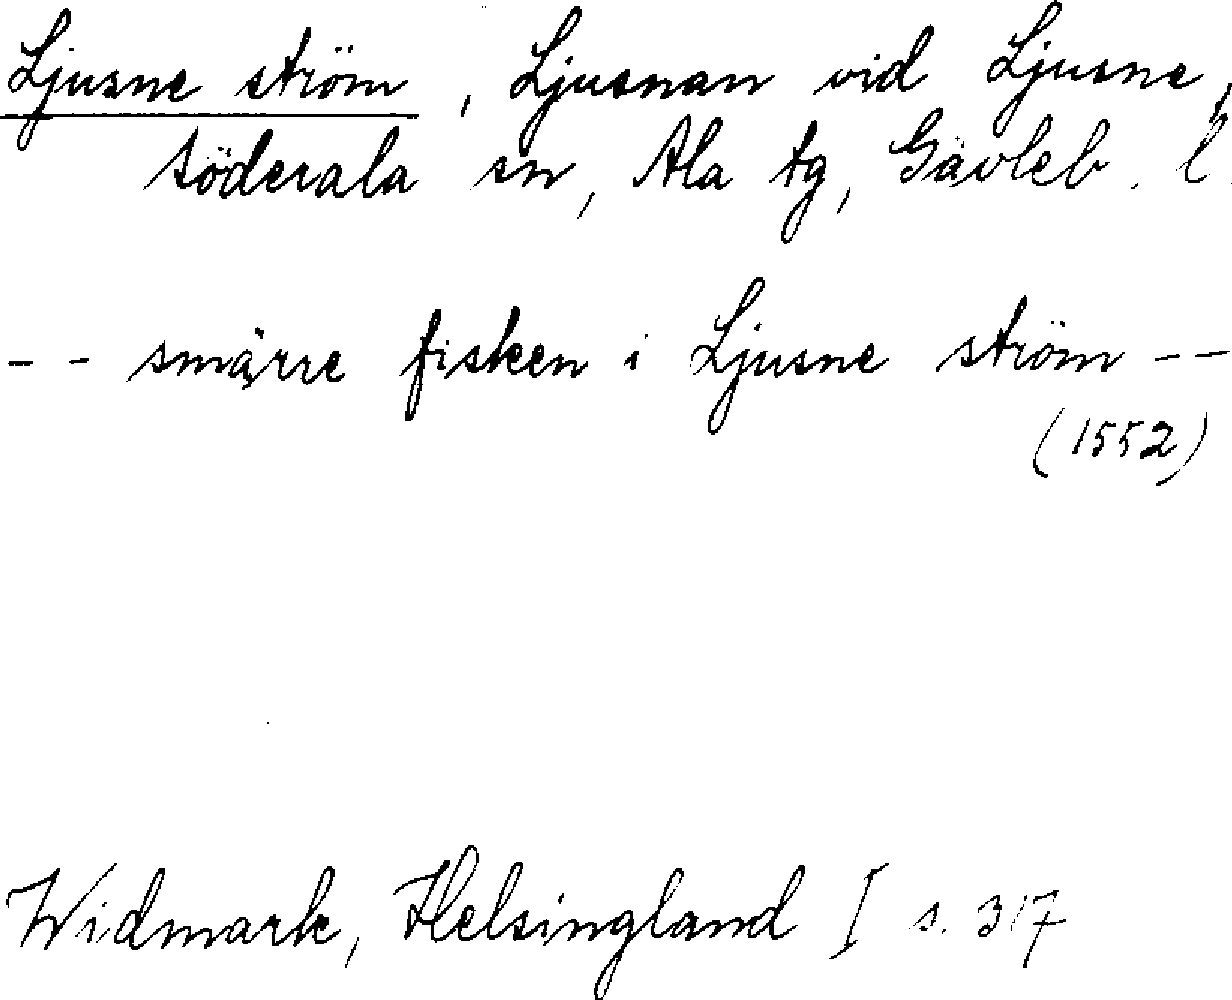 Ljusne ström, Ljusnan vid Ljusne,
Söderala sn, Ala tg, Gävleb. l.
- - smärre fisken i Ljusne ström - -
(1552)
Widmark, Helsingland I s. 317